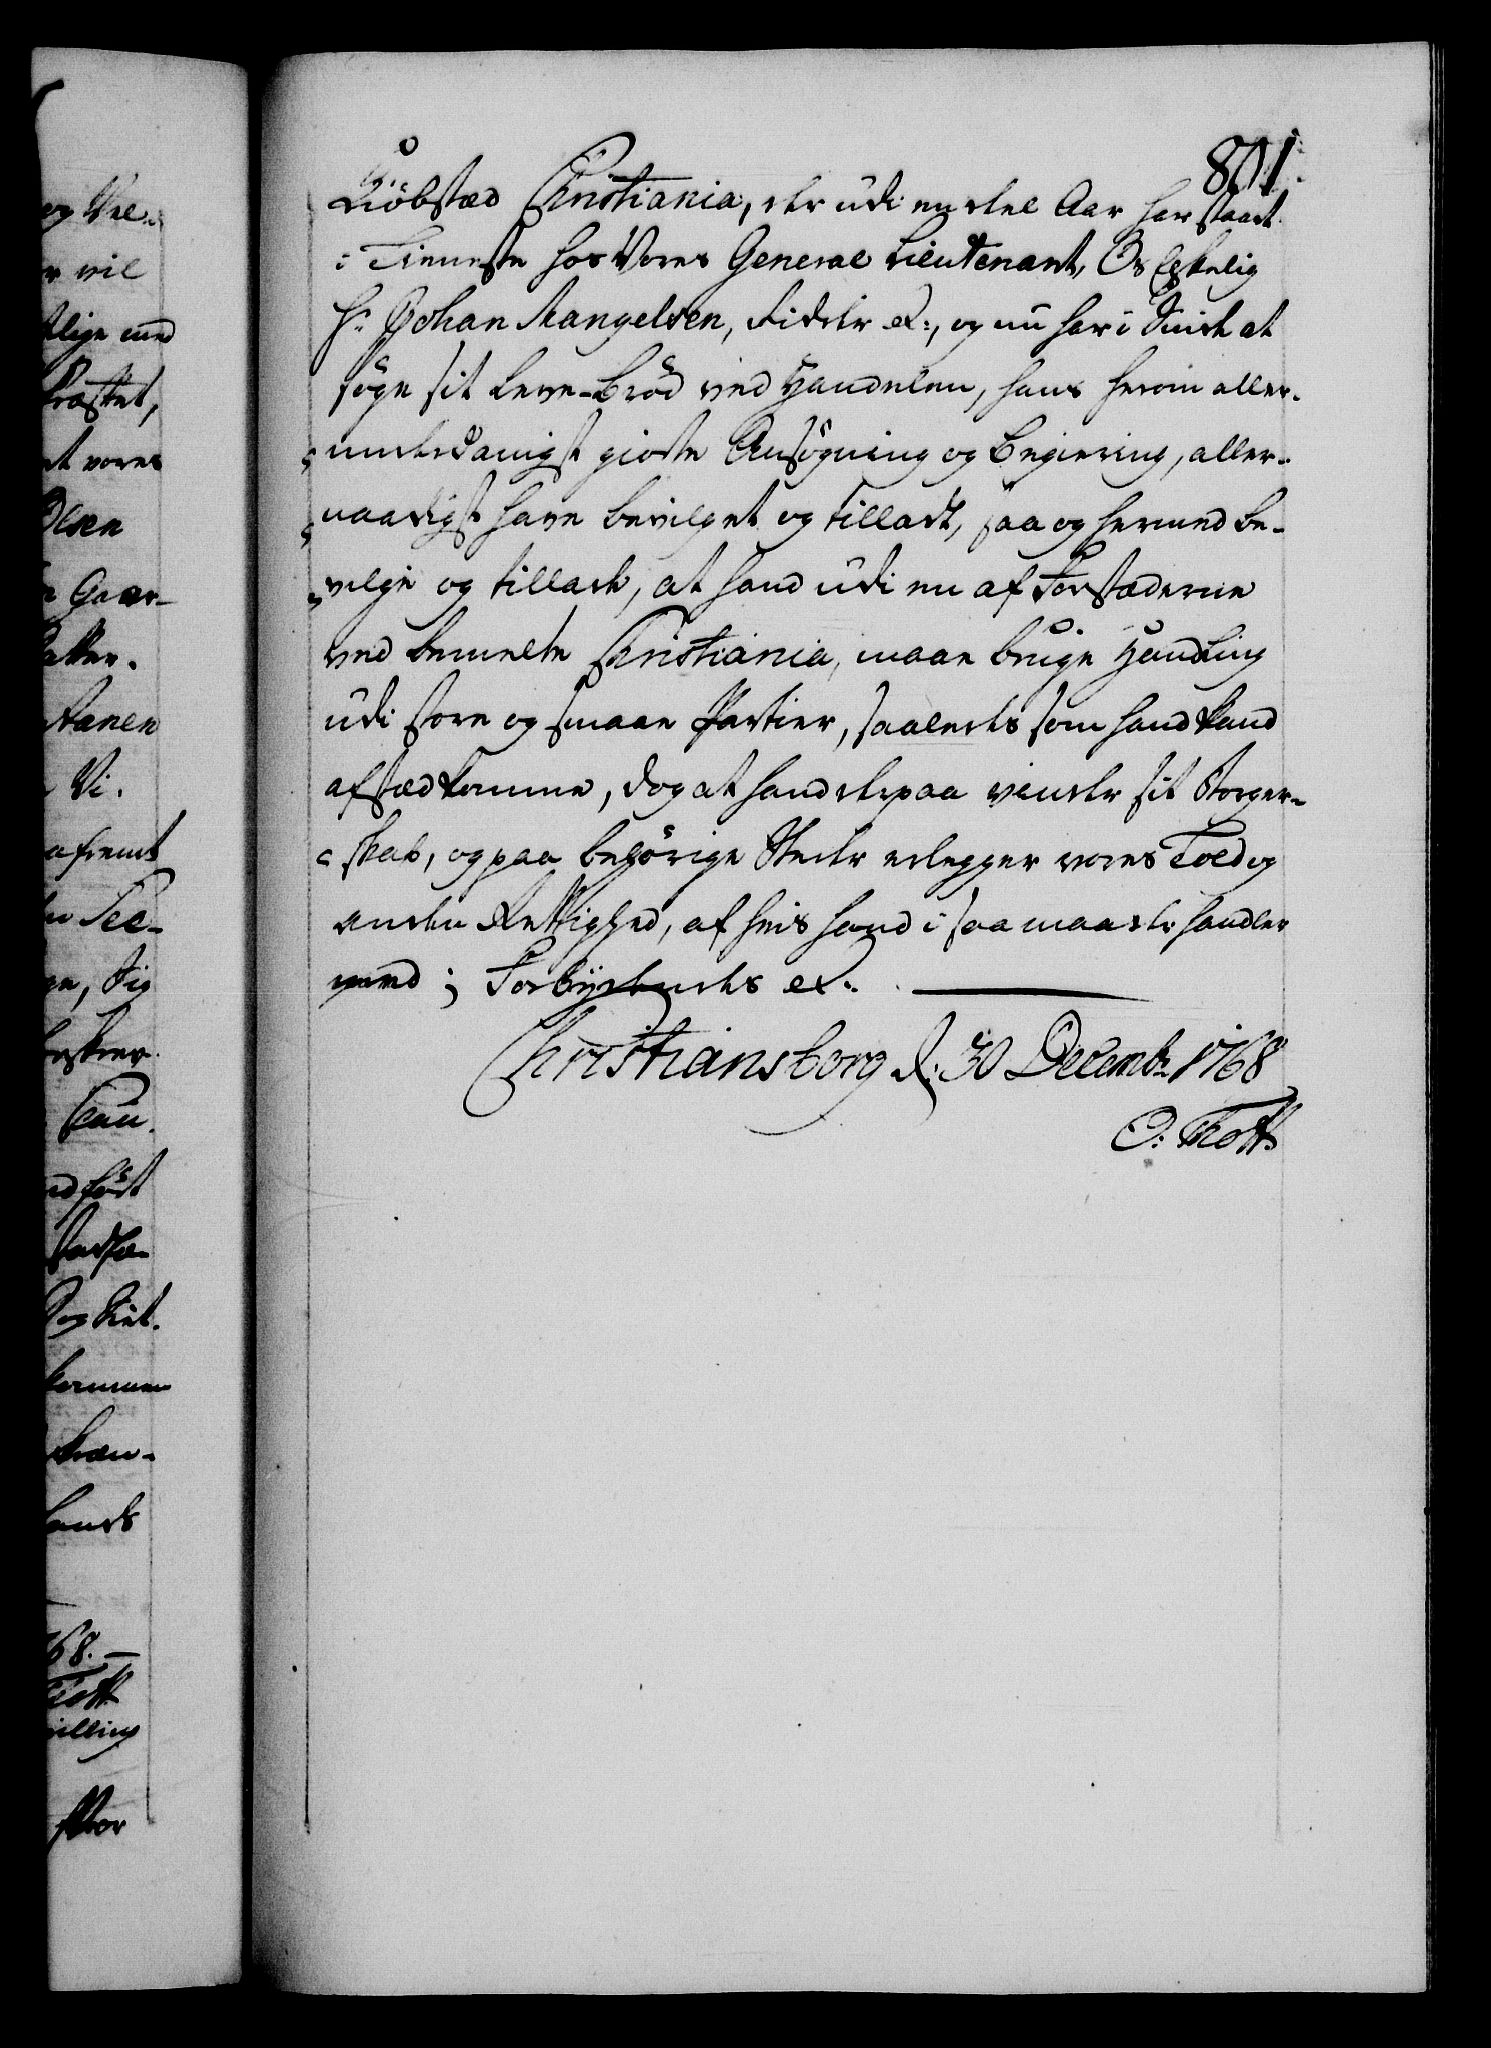 801.
Kiöbstæd Christiania, der udi en deel Aar har staaet
i Tieneste hos Vores General Lieutenant, Os Elskelig
Hr. Johan Mangelsen, Ridder etc:, og nu har i Sinde at
söge sit Leve-Bröd ved Handelen, hans herom aller-
underdanigst giorte Ansögning og Begiering, aller-
naadigst have bevilget og tilladt, saa og hermed be-
vilge og tillade, at hand udi en af Forstæderne
ved bemelte Christiania, maae bruge Handling
udi store og smaae Partier, saaledes som hand kand
afsted komme, dog at hand derpaa vinder sit Borger-
skab, og paa behörige Steder erlegger vores Told og
anden Rettighed, af hvis hand i saa maade handler
med; Forbydendes etc.
Christiansborg d: 30 Decembr 1768
O: Thott
og Vel-
vil
tlige med
Præstet,
at vores
Olsen
Vi.
Tee-
, Sig
68.
Thott
illing